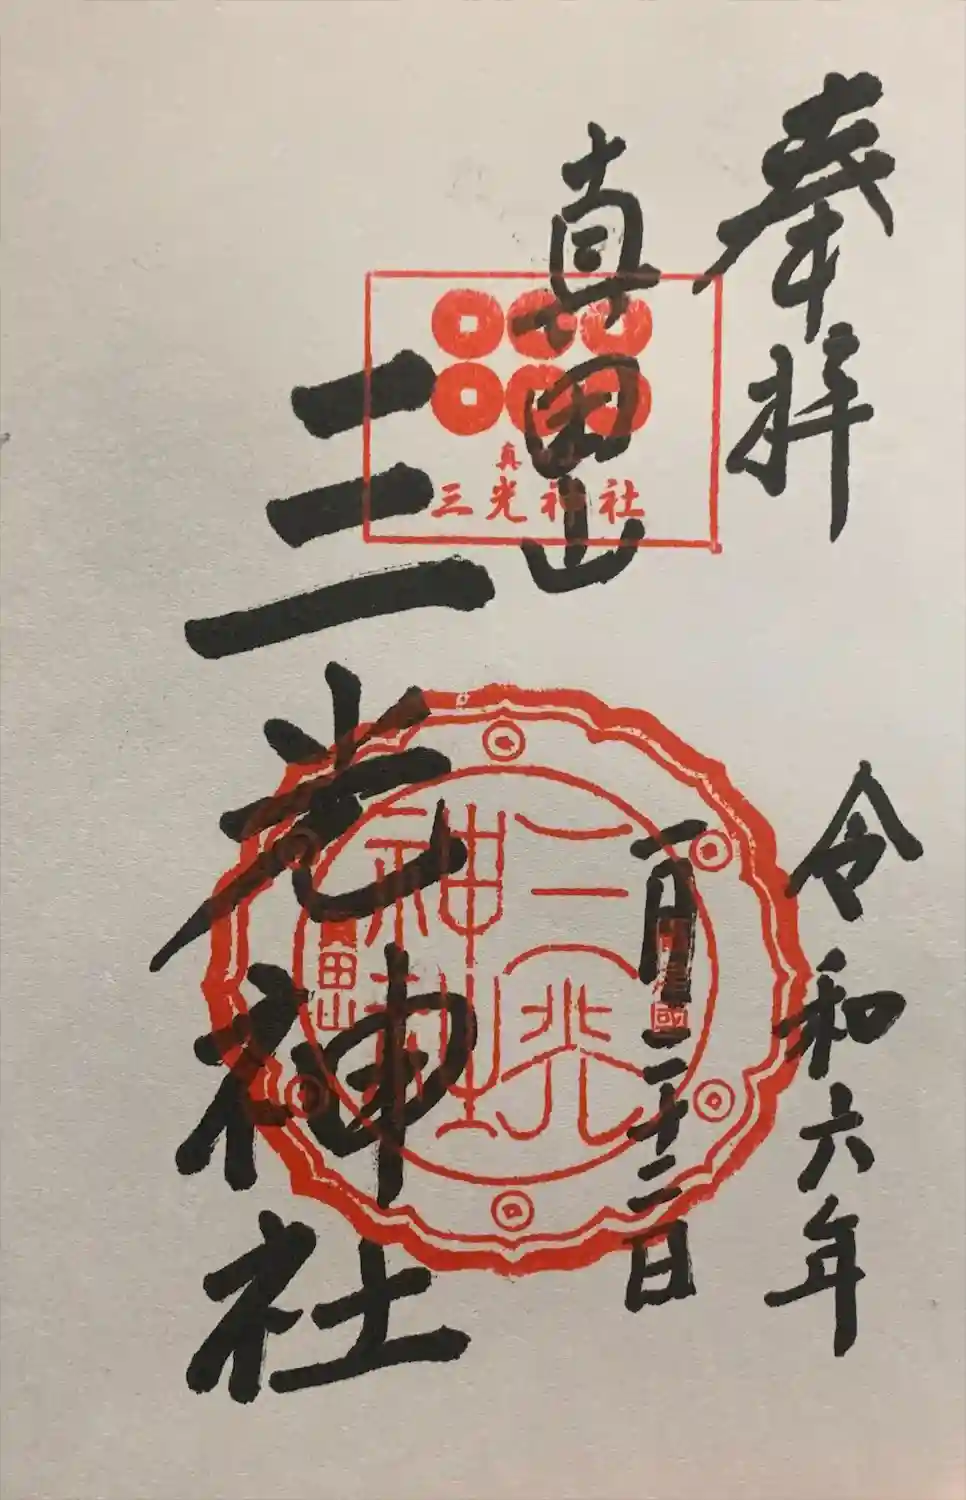 奉拝
令和六年
一月二十二日
真田山
三光神社
真田山
三光神社
三光神社
真田山